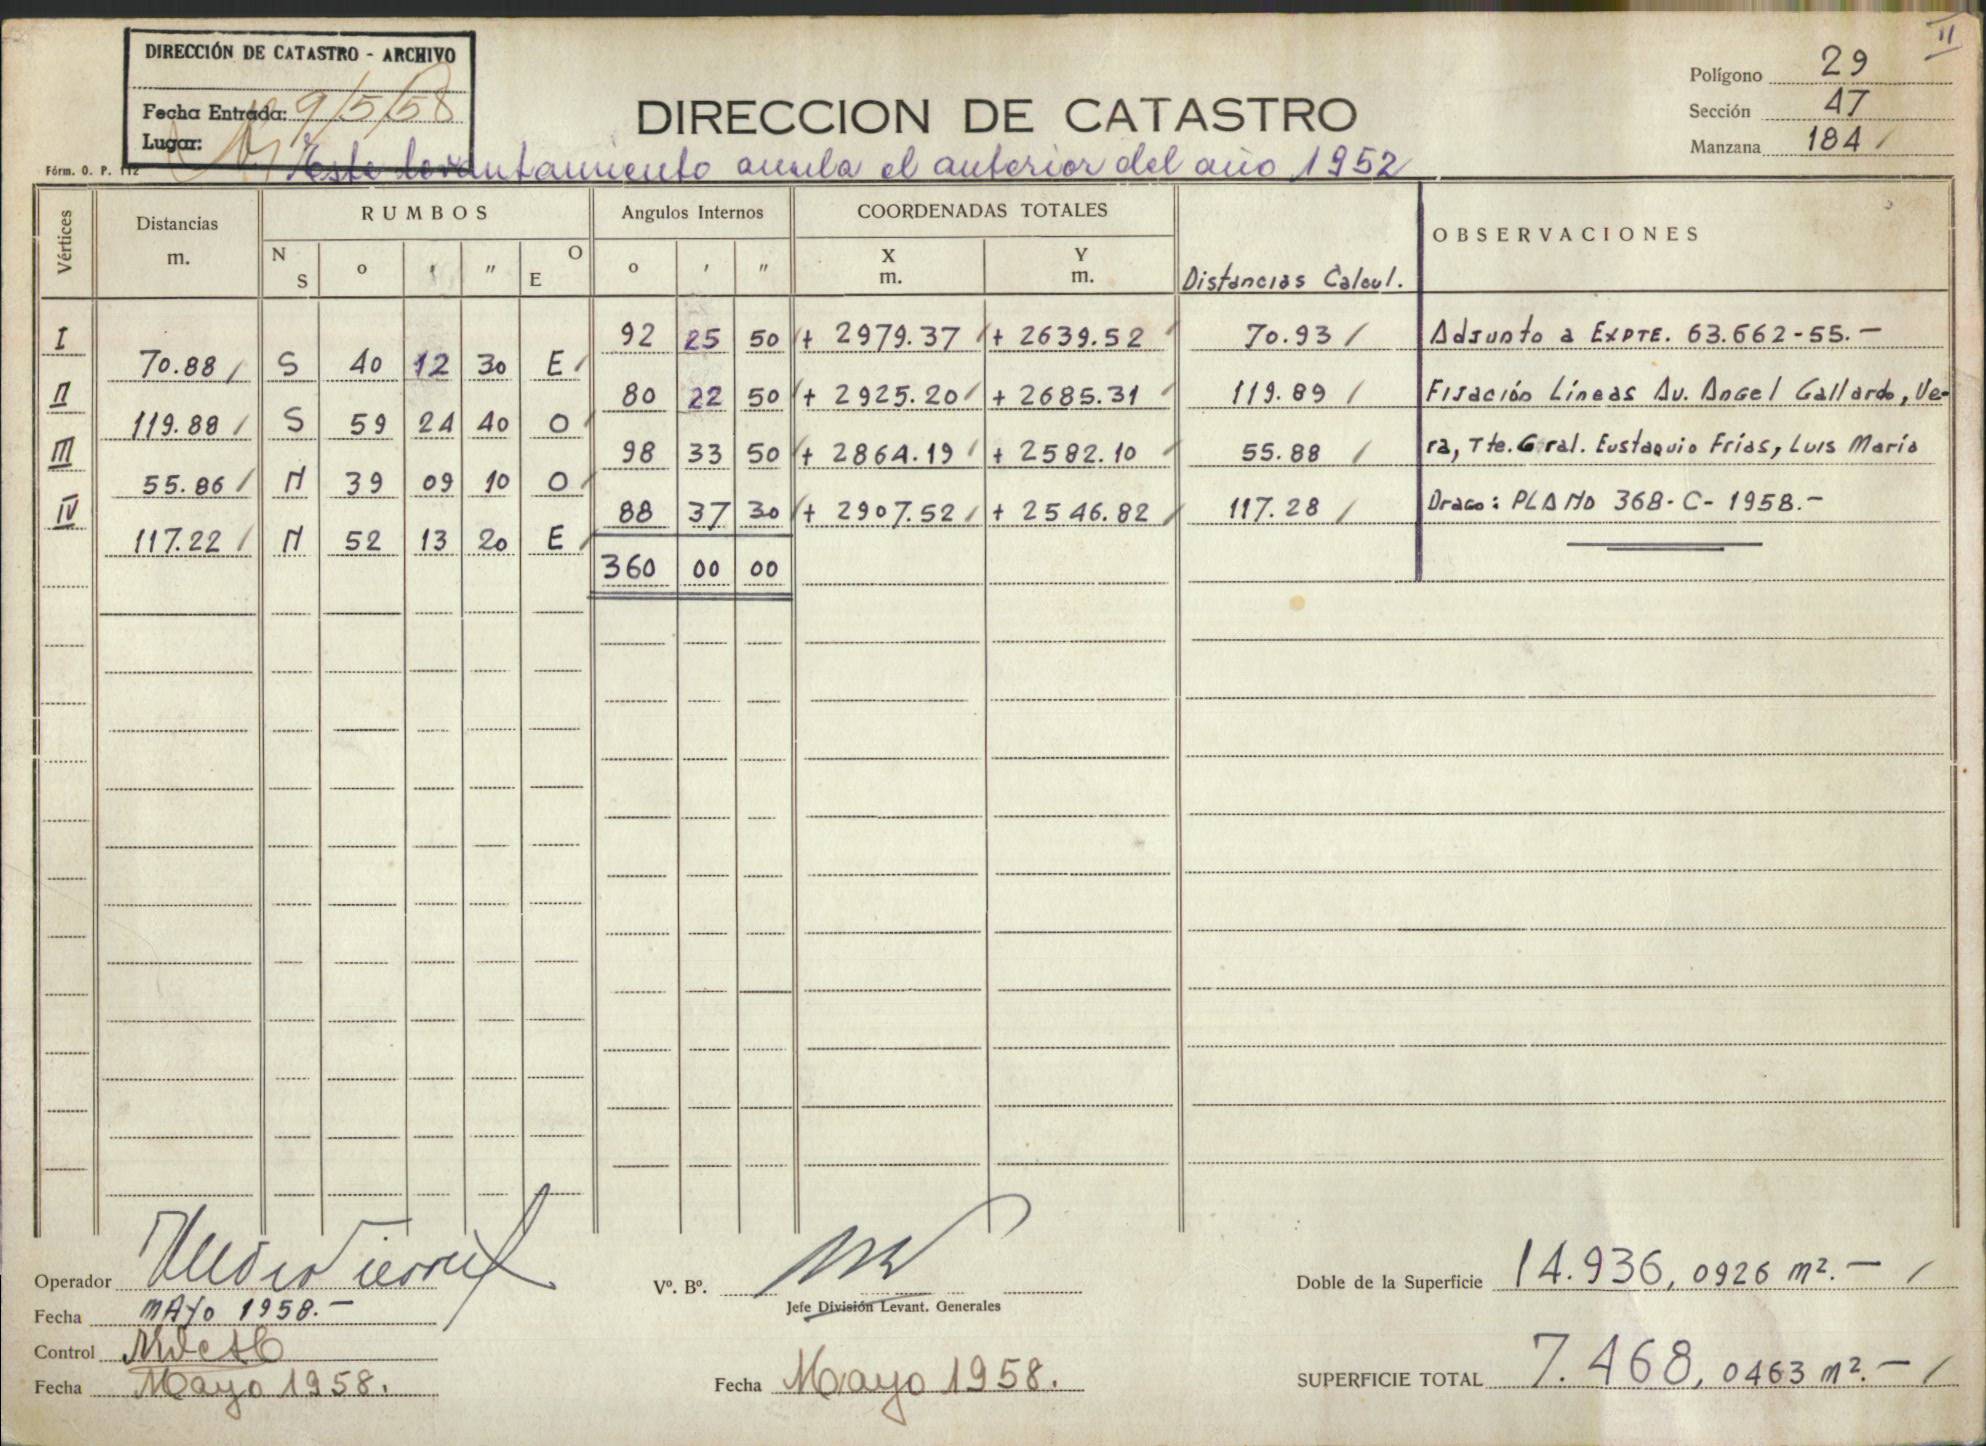 II
DIRECCIÓN DE CATASTRO - ARCHIVO
Fecha Entrada: 9/5/58
Lugar:
Fórm. O. P. 112
DIRECCION DE CATASTRO
Este levantamiento anula el anterior del año 1952
Polígono 29
Sección 47
Manzana 184
Vértices Distancias m. RUMBOS Angulos Internos COORDENADAS TOTALES Distancias Calcul. OBSERVACIONES
N S o ' " E O o ' " X m. Y m.
I 92 25 50 + 2979.37 + 2639.52 70.93 Adjunto a Expte. 63.662-55.-
70.88 S 40 12 30 E
II 80 22 50 + 2925.20 + 2685.31 119.89 Fijación Líneas Av. Angel Gallardo, Ve-
119.88 S 59 24 40 O
III 98 33 50 + 2864.19 + 2582.10 55.88 ra, Tte. Gral. Eustaquio Frías, Luis María
55.86 N 39 09 10 O
IV 88 37 30 + 2907.52 + 2546.82 117.28 Drago: PLANO 368-C-1958.-
117.22 N 52 13 20 E
360 00 00
Operador
Fecha MAYO 1958.-
Control
Fecha Mayo 1958.
Vº. Bº.
Jefe División Levant. Generales
Fecha Mayo 1958.
Doble de la Superficie 14.936,0926 m².-
SUPERFICIE TOTAL 7.468,0463 m².-